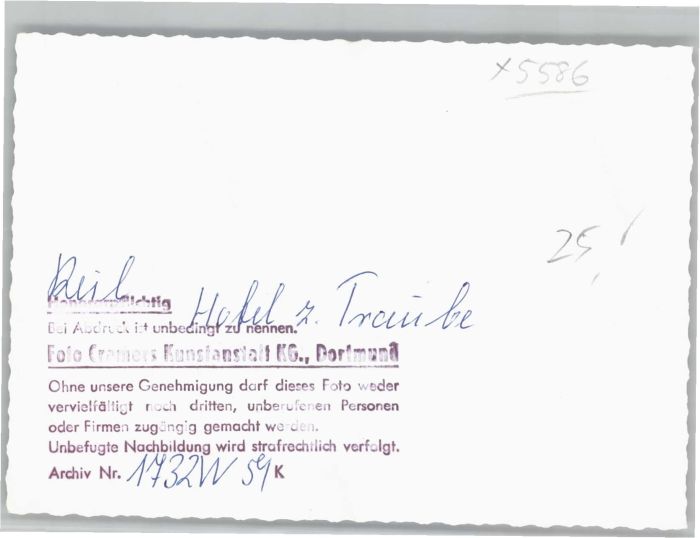 x5586
25,
Reil Hotel z. Traube
Honorarpflichtig
Bei Abdruck ist unbedingt zu nennen.
Foto Cramers Kunstanstalt KG., Dortmund
Ohne unsere Genehmigung darf dieses Foto weder
vervielfältigt noch dritten, unberufenen Personen
oder Firmen zugängig gemacht werden.
Unbefugte Nachbildung wird strafrechtlich verfolgt.
Archiv Nr. 1732W 59 K